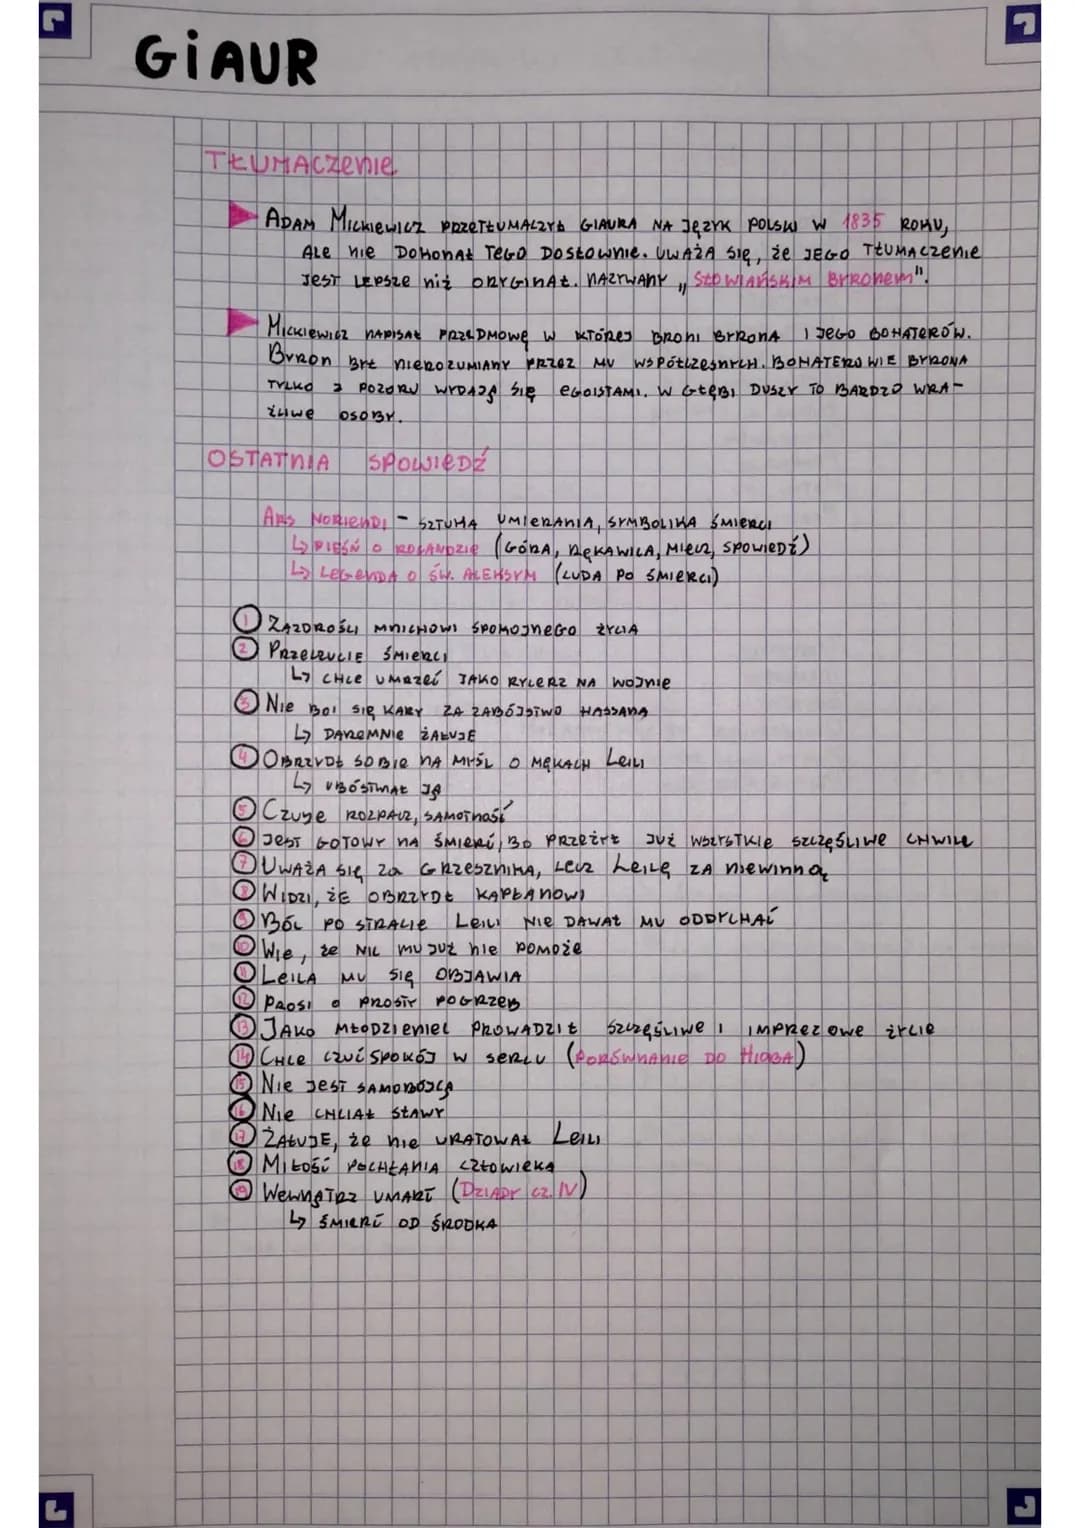 GiAUR
TŁUMACZENIE
ADAM MICKIEWICZ PRZETŁUMACZYŁ GIAURA NA JĘZYK POLSKI W 1835 ROKU,
ALE NIE DOKONAŁ TEGO DOSŁOWNIE. UWAŻA SIĘ, ŻE JEGO TŁUMACZENIE
JEST LEPSZE NIŻ ORYGINAŁ. NAZYWANY „SŁOWIAŃSKIM BYRONEM".
MICKIEWICZ NAPISAŁ PRZEDMOWĘ W KTÓREJ BRONI BYRONA I JEGO BOHATERÓW.
BYRON BYŁ NIEROZUMIANY PRZEZ MU WSPÓŁCZESNYCH. BOHATEROWIE BYRONA
TYLKO Z POZORU WYDAJĄ SIĘ EGOISTAMI. W GŁĘBI DUSZY TO BARDZO WRA-
ŻLIWE OSOBY.
OSTATNIA SPOWIEDŹ
ARS MORIENDI - SZTUKA UMIERANIA, SYMBOLIKA ŚMIERCI
↳ PIEŚŃ O ROLANDZIE (GÓRA, RĘKAWICA, MIECZ, SPOWIEDŹ)
↳ LEGENDA O ŚW. ALEKSYM (CUDA PO ŚMIERCI)
1 ZAZDROŚCI MNICHOWI SPOKOJNEGO ŻYCIA
2 PRZECZUCIE ŚMIERCI
↳ CHCE UMRZEĆ JAKO RYCERZ NA WOJNIE
3 NIE BOI SIĘ KARY ZA ZABÓJSTWO HASSANA
↳ DAREMNIE ŻAŁUJE
4 OBRZYDŁ SOBIE NA MYŚL O MĘKACH LEILI
↳ UBÓSTWIAŁ JĄ
5 CZUJE ROZPACZ, SAMOTNOŚĆ
6 JEST GOTOWY NA ŚMIERĆ, BO PRZEŻYŁ JUŻ WSZYSTKIE SZCZĘŚLIWE CHWILE
7 UWAŻA SIĘ ZA GRZESZNIKA, LECZ LEILĘ ZA NIEWINNĄ
8 WIDZI, ŻE OBRZYDŁ KAPŁANOWI
9 BÓL PO STRACIE LEILI NIE DAWAŁ MU ODDYCHAĆ
10 WIE, ŻE NIC MU JUŻ NIE POMOŻE
11 LEILA MU SIĘ OBJAWIA
12 PROSI O PROSTY POGRZEB
13 JAKO MŁODZIENIEC PROWADZIŁ SZCZĘŚLIWE I IMPREZOWE ŻYCIE
14 CHCE CZUĆ SPOKÓJ W SERCU (PORÓWNANIE DO HIOBA)
15 NIE JEST SAMOBÓJCĄ
16 NIE CHCIAŁ SŁAWY
17 ŻAŁUJE, ŻE NIE URATOWAŁ LEILI
18 MIŁOŚĆ POCHŁANIA CZŁOWIEKA
19 WEWNĄTRZ UMARŁ (DZIADY CZ. IV)
↳ ŚMIERĆ OD ŚRODKA